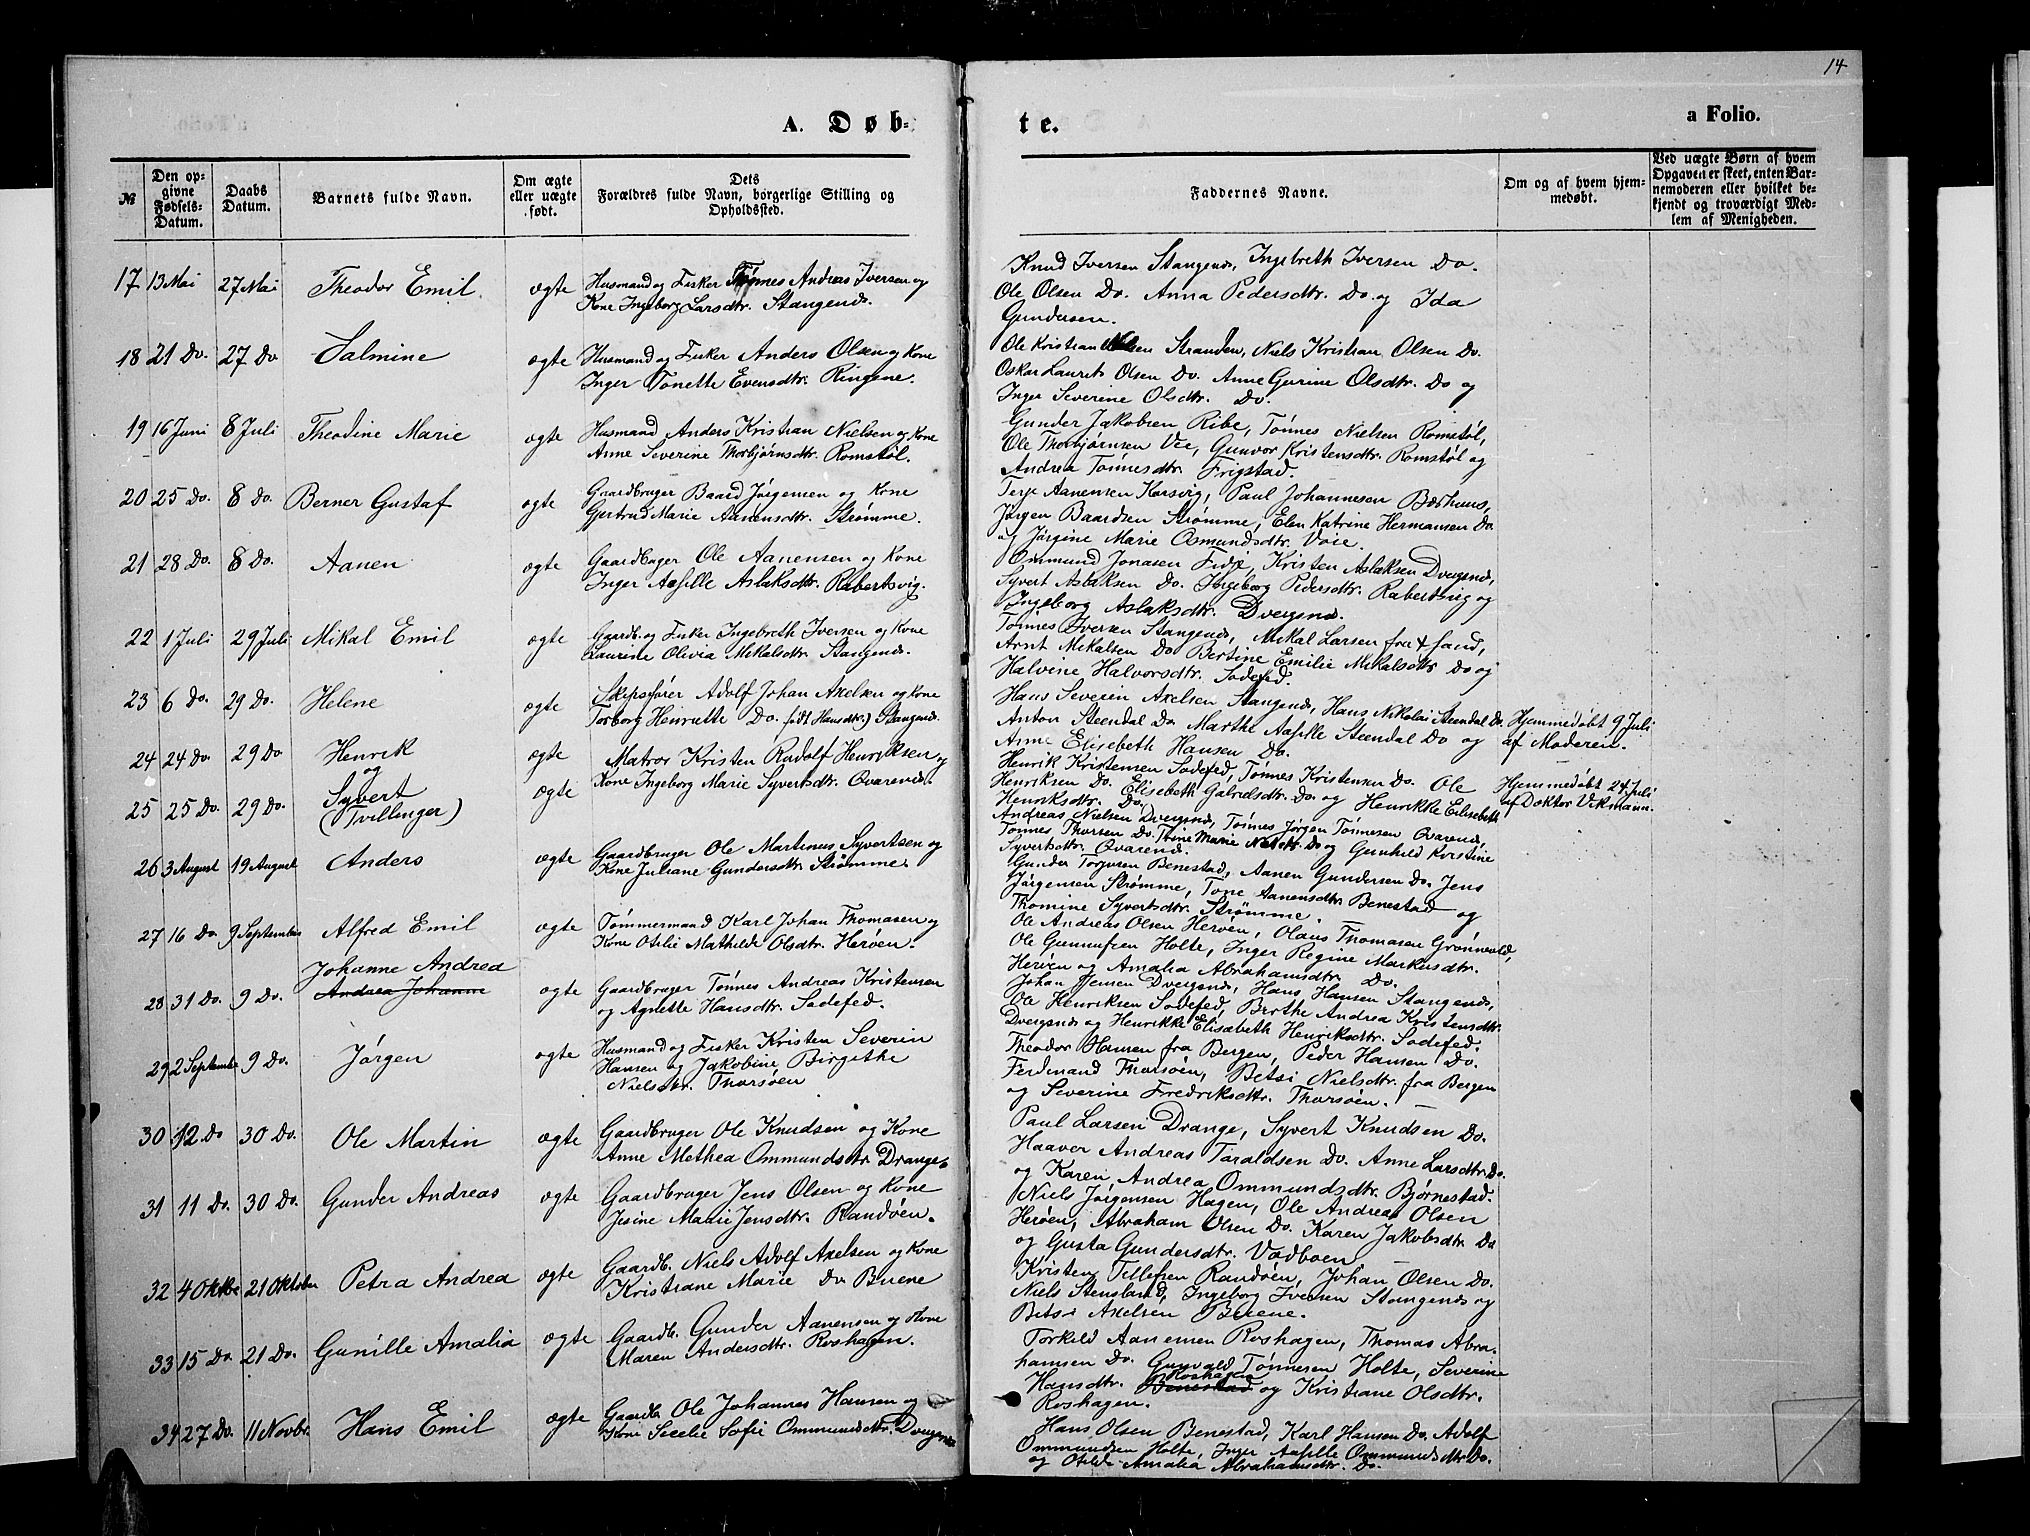 14
A. Døb-
te.
a Folio.
№
Den opgivne Fødsels-Datum.
Daabs Datum.
Barnets fulde Navn.
Om ægte eller uægte født.
Dets Forældres fulde Navn, borgerlige Stilling og Opholdssted.
Faddernes Navne.
Om og af hvem hjemmedøbt.
Ved uægte Børn af hvem Opgaven er skeet, enten Barnemoderen eller hvilket bekjendt og troværdigt Medlem af Menigheden.
17 13 Mai 27 Mai Theodor Emil. ægte Husmand og Fisker Tønnes Andreas Iversen og
Kone Ingeborg Larsdtr. Stangenes.
Knud Iversen Stangenes, Ingebreth Iversen Do.
Ole Olsen Do. Anna Pedersdtr. Do. og Ida
Gundersen.
18 21 Do. 27 Do Salmine ægte Husmand og Fisker Anders Olsen og Kone
Inger Tonette Evensdtr. Ringene.
Ole Kristian Stranden, Niels Kristian Olsen Do.
Oskar Laurits Olsen Do. Anne Gurine Olsdtr. Do og
Inger Severine Olsdtr. Do.
19 16 Juni 8 Juli Theodine Marie ægte Husmand Anders Kristian Nielsen og Kone
Anne Severine Thorbjørnsdtr. Romstøl.
Gunder Jakobsen Ribe, Tønnes Nielsen Romstøl,
Ole Thorbjørnsen Vee, Gunvor Kristensdtr. Romstøl og
Andrea Tønnesdtr. Frigstad.
20 25 Do. 8 Do. Berner Gustaf ægte Gaardbruger Baard Jørgensen og Kone
Gjertrud Marie Aanensdtr. Strømme.
Terje Aanensen Korsvig, Paul Johannesen Bærhuus,
Jørgen Baardsen Strømme, Elen Katrine Hermansen Do
og Jørgine Marie Osmundsdtr. Voie.
21 28 Do. 8 Do. Aanen ægte Gaardbruger Ole Aanensen og Kone
Inger Aasille Aslaksdtr. Rabertsvig.
Ommund Jonasen Fidje, Kristen Aslaksen Dvergsnes,
Syvert Aslaksen Do. Ingeborg Pedersdtr. Rabertsvig og
Ingeborg Aslaksdtr. Dvergsnes.
22 1 Juli 29 Juli Mikal Emil ægte Gaardb. og Fisker Ingebreth Iversen og Kone
Laurine Olivia Mikalsdtr. Stangenes.
Tønnes Iversen Stangenes, Mikal Larsen fra X sand,
Arnt Mikalsen Do Bertine Emilie Mikalsdtr Do og
Halvine Halvorsdtr. Sodefed.
23 6 Do. 29 Do. Helene ægte Skipsfører Adolf Johan Axelsen og Kone
Torborg Henriette Do. (født Hansdtr.) Stangenes.
Hans Severin Axelsen Stangenes, Hans Nikolai Steendal Do.
Anton Steendal Do. Marthe Aasille Steendal Do og
Anne Elisebeth Hansen Do.
Hjemmedøbt 9 Juli
af Moderen.
24 24 Do. 29 Do Henrik ægte Matros Kristen Rudolf Henriksen og
og
25 25 Do. 29 Do. Syvert ægte Kone Ingeborg Marie Syvertsdtr. Qvarenes.
(Tvillinger)
Henrik Kristensen Sodefed, Tønnes Kristensen Do. Ole
Henriksen Do. Elisebeth Gabrielsdtr. Do. og Henrikke Elisebeth
Henriksdtr. Do.
Andreas Nielsen Dvergsnes, Tønnes Jørgen Tønnesen Qvarenes,
Tønnes Thorsen Do. Trine Marie Do og Gunhild Kristine
Syvertsdtr. Qvarenes.
Hjemmedøbt 24 Juli
af Doktor Vikmann.
26 3 August 19 August Anders ægte Gaardbruger Ole Martinus Syvertsen og
Kone Juliane Gundersdtr. Strømme.
Gunder Torjusen Benestad, Aanen Gundersen Do. Jens
Jørgensen Strømme, Tone Aanensdtr. Benestad og
Thomine Syvertsdtr. Strømme.
27 16 Do 9 September Alfred Emil ægte Tømmermand Karl Johan Thomasen og
Kone Otelie Mathilde Olsdtr. Herøen.
Ole Andreas Olsen Herøen, Olaus Thomasen Grønnevold,
Ole Gunnufsen Holte, Inger Regine Markusdtr.
Herøen og Amalia Abrahamsdtr. Do.
Johanne Andrea
28 31 Do. 9 Do. Andrea Johanne ægte Gaardbruger Tønnes Andreas Kristensen
og Agnette Hansdtr. Sodefed.
Johan Jensen Dvergsnes, Hans Hansen Stangenes,
Ole Henriksen Sodefed, Berthe Andrea Kristensdtr.
Dvergsnes og Henrikke Elisabeth Henriksdtr. Sodefed.
29 2 September 9 Do. Jørgen ægte Husmand og Fisker Kristen Severin
Hansen og Jakobine Birgithe
Nielsdtr. Thorsøen
Theodor Hansen fra Bergen, Peder Hansen Do.
Ferdinand Thorsøen, Betsi Nielsdtr. fra Bergen
og Severine Fredriksdtr. Thorsøen.
30 12 Do 30 Do. Ole Martin ægte Gaardbruger Ole Knudsen og Kone
Anne Methea Ommundsdtr Drange
Paul Larsen Drange, Syvert Knudsen Do.
Haaver Andreas Taraldsen Do. Anne Larsdtr. Do.
og Karen Andrea Ommundsdtr. Bjørnestad.
31 11 Do. 30 Do. Gunder Andreas ægte Gaardbruger Jens Olsen og Kone
Jesine Marie Jensdtr. Randøen.
Niels Jørgensen Hagen, Ole Andreas Olsen
Herøen, Abraham Olsen Do. Karen Jakobsdtr. Do
og Gusta Gundersdtr. Vodboen.
32 4 Oktbr 21 Oktober Petra Andrea ægte Gaardb. Niels Adolf Axelsen og Kone
Kristiane Marie Do Buene
Kristen Tellefsen Randøen, Johan Olsen Do.
Niels Stensland, Ingeborg Iversen Stangenes og
Betsi Axelsen Buene.
33 15 Do. 21 Do. Gunille Amalia ægte Gaardb. Gunder Aanensen og Kone
Maren Andersdtr. Roshagen.
Torkild Aanensen Roshagen, Thomas Abra-
hamsen Do. Gunvald Tønnesen Holte, Severine
Hansdtr. Benestad Roshagen og Kristiane Olsdtr.
Roshagen.
34 27 Do. 11 Novbr. Hans Emil ægte Gaardb. Ole Johannes Hansen og
Kone Secelie Sofie Ommundsdtr. Dvergsnes
Hans Olsen Benestad, Karl Hansen Do. Adolf
Ommundsen Holte, Inger Aasille Ommundsdtr Do.
og Otilde Amalia Abrahamsdtr. Do.